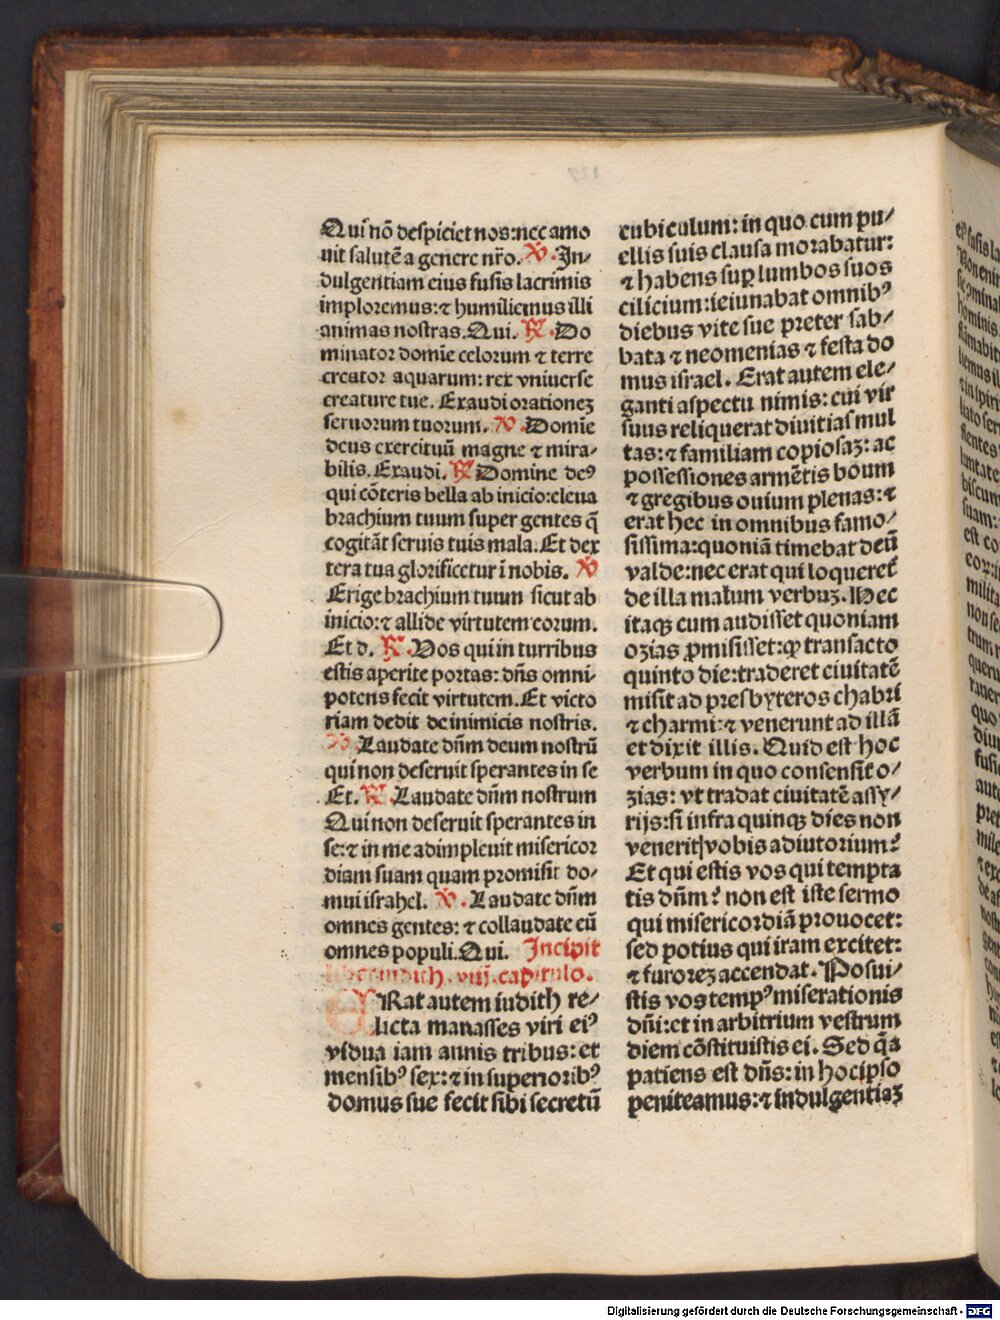 Qui nō despiciet nos: nec amo
uit salutē a genere nr̄o. ℣. In⸗
dulgentiam eius fusis lacrimis
imploremus: ⁊ humiliemus illi
animas nostras. Qui. ℟. Do
minator domīe celorum ⁊ terre
creator aquarum: rex vniuerse
creature tue. Exaudi orationeꝫ
seruorum tuorum. ℣. Domīe
deus exercituū magne ⁊ mira⸗
bilis. Exaudi. ℟. Domine deꝰ
qui cōteris bella ab inicio: eleua
brachium tuum super gentes q̄
cogitāt seruis tuis mala. Et dex
tera tua glorificetur ī nobis. ℣
Erige brachium tuum sicut ab
inicio: ⁊ allide virtutem eorum.
Et d. ℟. Vos qui in turribus
estis aperite portas: dn̄s omni⸗
potens fecit virtutem. Et victo
riam dedit de inimicis nostris.
℣. Laudate dn̄m deum nostrū
qui non deseruit sperantes in se
Et. ℟. Laudate dn̄m nostrum
Qui non deseruit sperantes in
se: ⁊ in me adimpleuit misericor
diam suam quam promisit do⸗
mui israhel. ℣. Laudate dn̄m
omnes gentes: ⁊ collaudate eū
omnes populi. Qui. Incipit
liber iudith. viij. capitulo.
ERat autem iudith re⸗
licta manasses viri eiꝰ
vidua iam annis tribus: et
mensibꝰ sex: ⁊ in superioribꝰ
domus sue fecit sibi secretū
cubiculum: in quo cum pu⸗
ellis suis clausa morabatur:
⁊ habens suꝑ lumbos suos
cilicium: ieiunabat omnibꝰ
diebus vite sue preter sab⸗
bata ⁊ neomenias ⁊ festa do
mus israel. Erat autem ele⸗
ganti aspectu nimis: cui vir
suus reliquerat diuitias mul
tas: ⁊ familiam copiosaꝫ: ac
possessiones armētis boum
⁊ gregibus ouium plenas: ⁊
erat hec in omnibus famo⸗
sissima: quoniā timebat deū
valde: nec erat qui loqueret᷑
de illa malum verbuꝫ. Hec
itaqꝫ cum audisset quoniam
ozias ꝓmisisset: ꝙ transacto
quinto die: traderet ciuitatē
misit ad presbyteros chabri
⁊ charmi: ⁊ venerunt ad illā
et dixit illis. Quid est hoc
verbum in quo consensit o⸗
zias: vt tradat ciuitatē assy⸗
rijs: si infra quinqꝫ dies non
venerit vobis adiutorium?
Et qui estis vos qui tempta
tis dn̄m? non est iste sermo
qui misericordiā prouocet:
sed potius qui iram excitet:
⁊ furoreꝫ accendat. Posui⸗
stis vos tempꝰ miserationis
dn̄i: et in arbitrium vestrum
diem cōstituistis ei. Sed q̄a
patiens est dn̄s: in hoc ipso
peniteamus: ⁊ indulgentiaꝫ
Digitalisierung gefördert durch die Deutsche Forschungsgemeinschaft - DFG